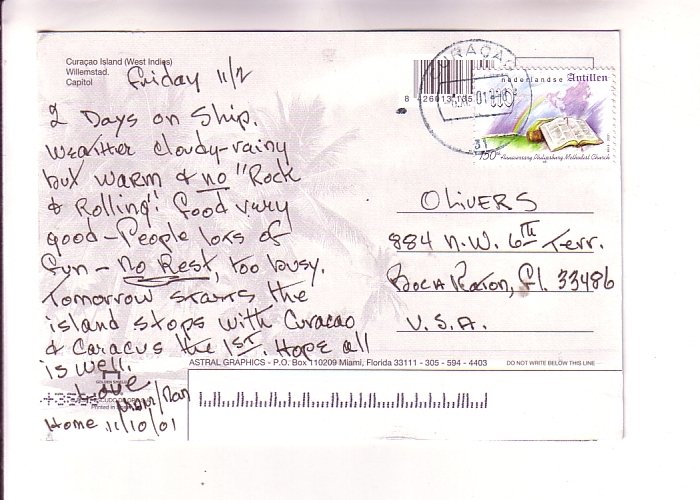 Curaçao Island (West Indies)
Willemstad.
Capitol
Friday 11/2
2 Days on Ship.
Weather cloudy-rainy
but warm & no "Rock
& Rolling". Food very
good - People lots of
fun - no Rest, too busy.
Tomorrow starts the
island stops with Curacao
& Caracus the 1st. Hope all
is well.
Love
Mom/Nan
Home 11/10/01
CURAÇAO
nederlandse Antillen
150th Anniversary Philipsburg Methodist Church
OLIVERS
884 N.W. 6th Terr.
Boca Raton, Fl. 33486
U.S.A.
ASTRAL GRAPHICS - P.O. Box 110209 Miami, Florida 33111 - 305 - 594 - 4403
DO NOT WRITE BELOW THIS LINE
Printed in